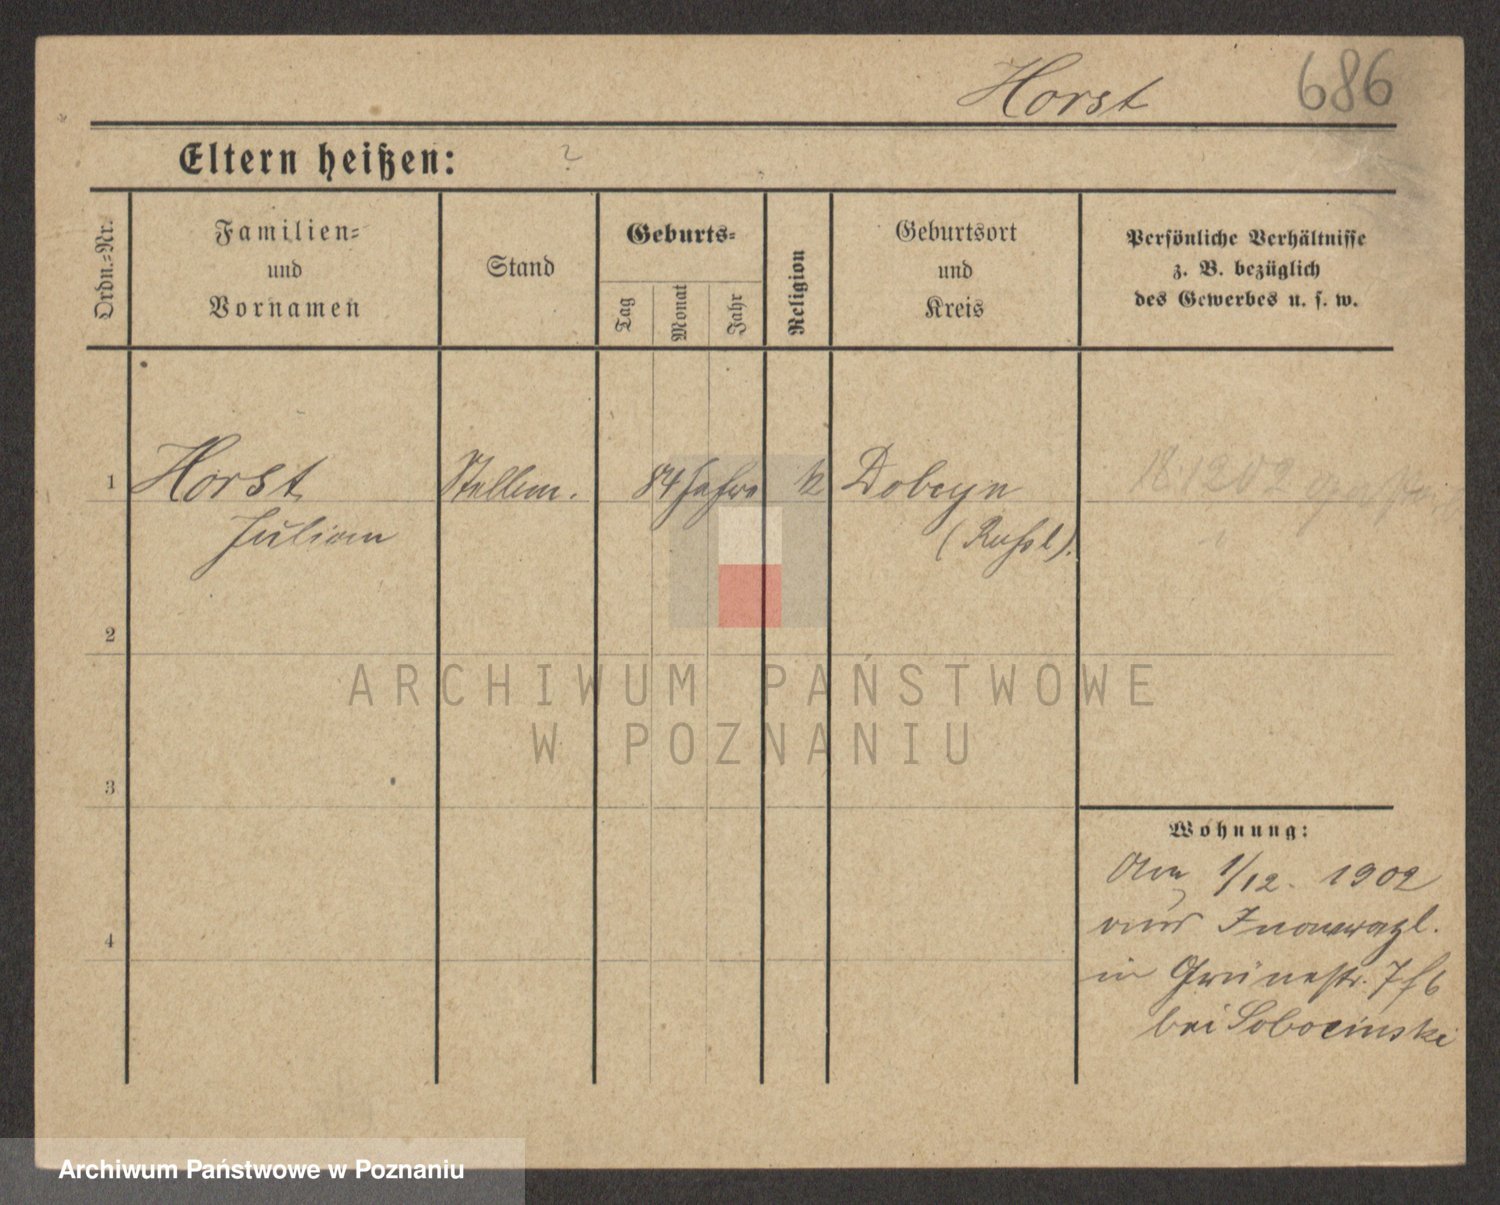 Horst 686
Eltern heißen: ?
Ordn.-Nr.
Familien-
und
Vornamen
Stand
Geburts-
Tag
Monat
Jahr
Religion
Geburtsort
und
Kreis
Persönliche Verhältnisse
z. B. bezüglich
des Gewerbes u. s. w.
1 Horst Stellm. 84 Jahre k Dobczyn
Julian (Russl).
2
3
4
Wohnung:
1/12. 1902
aus Inowrazl.
in Grünestr. 7
bei Sobocinski
ARCHIWUM PAŃSTWOWE
W POZNANIU
Archiwum Państwowe w Poznaniu